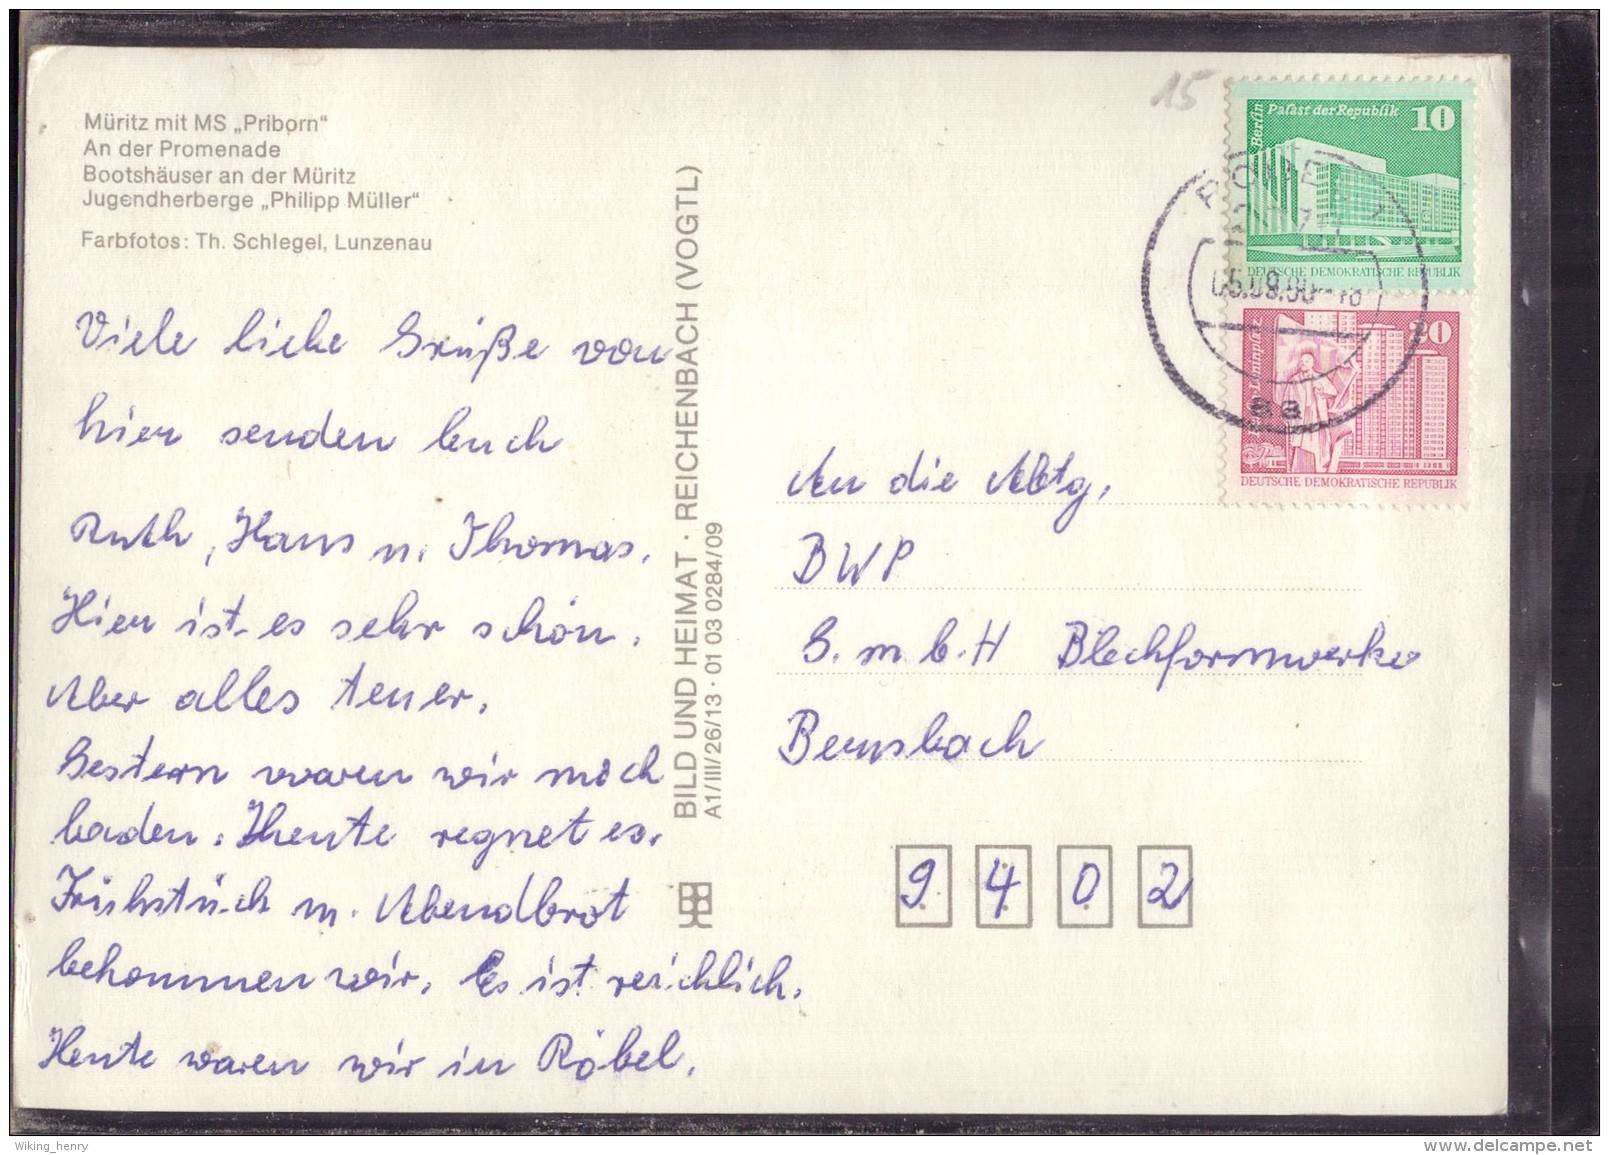 Müritz mit MS „Priborn“
An der Promenade
Bootshäuser an der Müritz
Jugendherberge „Philipp Müller“
Farbfotos: Th. Schlegel, Lunzenau
Viele liebe Grüße von
hier senden Euch
Ruth, Hans u. Thomas.
Hier ist es sehr schön.
Aber alles teuer.
Gestern waren wir noch
baden. Heute regnet es.
Frühstück u. Abendbrot
bekommen wir. Es ist reichlich.
Heute waren wir in Röbel.
BILD UND HEIMAT · REICHENBACH (VOGTL)
A1/III/26/13 · 01 03 0284/09
15
Berlin
Palast der Republik 10
DEUTSCHE DEMOKRATISCHE REPUBLIK
05.09.90
aa
Leninplatz
20
DEUTSCHE DEMOKRATISCHE REPUBLIK
An die Abtg.
BWP
G.m.b.H Blechformwerke
Bernsbach
9 4 0 2
Wiking_henry
www.delcampe.net